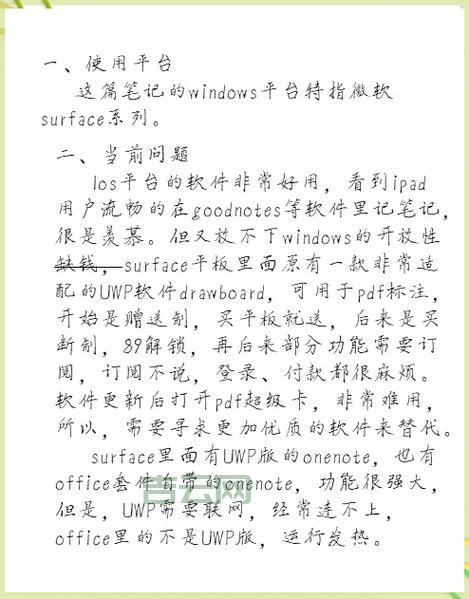 一、使用平台
这篇笔记的windows平台特指微软
surface系列。
二、当前问题
Ios平台的软件非常好用，看到ipad
用户流畅的在goodnotes等软件里记笔记，
很是羡慕。但又放不下windows的开放性
缺钱，surface平板里面原有一款非常适
配的UWP软件drawboard，可用于pdf标注，
开始是赠送制，买平板就送，后来是买
断制，89解锁，再后来部分功能需要订
阅，订阅不说，登录、付款都很麻烦。
软件更新后打开pdf超级卡，非常难用，
所以，需要寻求更加优质的软件来替代。
surface里面有UWP版的onenote，也有
office套件自带的onenote，功能很强大，
但是，UWP需要联网，经常连不上，
office里的不是UWP版，运行发热。